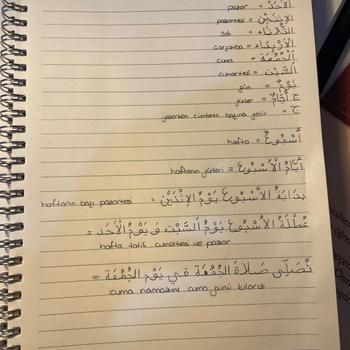 pazar = اَلْأَحَدْ
pazartesi = اَلْاِثْنَيْنْ
salı = اَلثُّلَاثَاء
çarşamba = اَلْأَرْبِعَاء
cuma = اَلْجُمُعَة
cumartesi = اَلسَّبْت
gün = يَوْمٌ
günler = ج أَيَّامٌ
yazarken cümlenin başına gelir = ج
hafta = أُسْبُوعٌ
haftanın günleri = أَيَّامُ الْأُسْبُوعِ
haftanın başı pazartesi = بِدَايَةُ الْأُسْبُوعِ يَوْمُ الْاِثْنَيْنْ
عُطْلَةُ الْاُسْبُوعِ يَوْمُ السَّبْتِ وَ يَوْمُ الْأَحَد =
hafta tatili cumartesi ve pazar
نُصَلِّي صَلَاةَ الْجُمُعَةِ فِي يَوْمِ الْجُمُعَة =
cuma namazını cuma günü kılarız